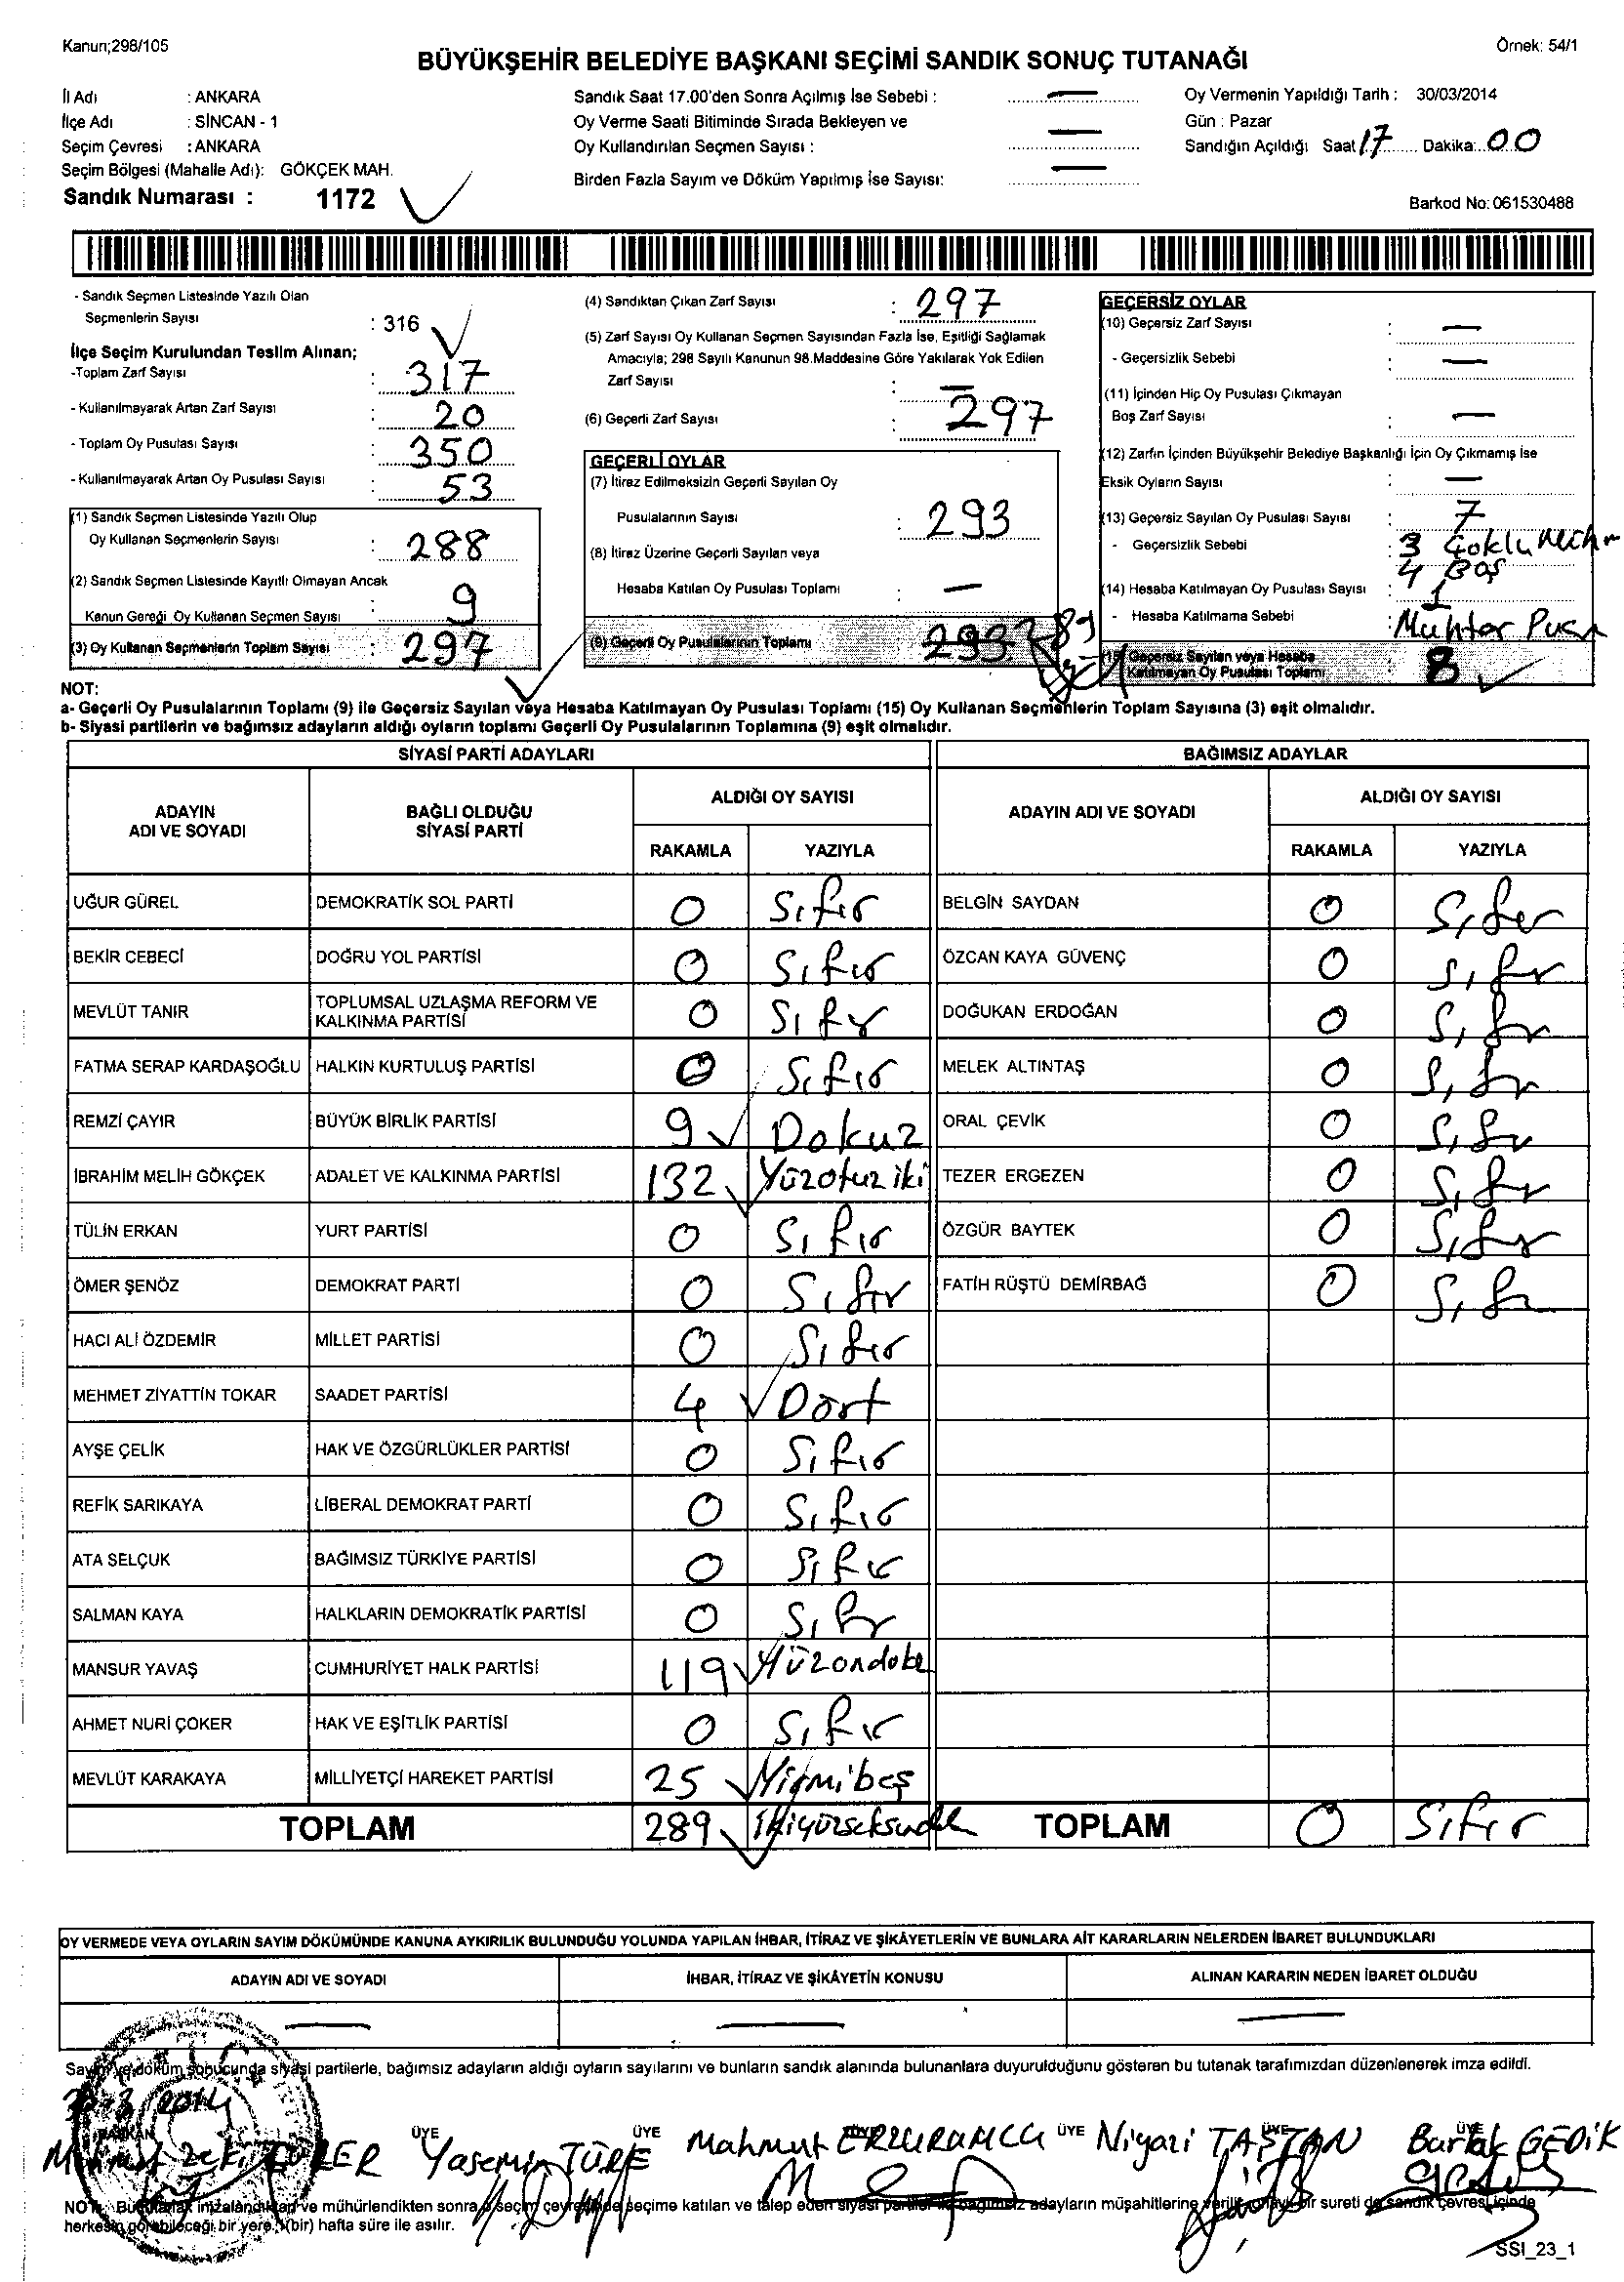 Kanun;298/105
Örnek: 54/1
BÜYÜKŞEHİR BELEDİYE BAŞKANI SEÇİMİ SANDIK SONUÇ TUTANAĞI
İl Adı : ANKARA
İlçe Adı : SİNCAN - 1
Seçim Çevresi : ANKARA
Seçim Bölgesi (Mahalle Adı): GÖKÇEK MAH.
Sandık Numarası : 1172
Sandık Saat 17.00'den Sonra Açılmış İse Sebebi : —
Oy Verme Saati Bitiminde Sırada Bekleyen ve
Oy Kullandırılan Seçmen Sayısı : —
Birden Fazla Sayım ve Döküm Yapılmış İse Sayısı: —
Oy Vermenin Yapıldığı Tarih : 30/03/2014
Gün : Pazar
Sandığın Açıldığı Saat 17 Dakika: 00
Barkod No: 061530488
- Sandık Seçmen Listesinde Yazılı Olan
Seçmenlerin Sayısı : 316
İlçe Seçim Kurulundan Teslim Alınan;
-Toplam Zarf Sayısı : 317
- Kullanılmayarak Artan Zarf Sayısı : 20
- Toplam Oy Pusulası Sayısı : 350
- Kullanılmayarak Artan Oy Pusulası Sayısı : 53
(1) Sandık Seçmen Listesinde Yazılı Olup
Oy Kullanan Seçmenlerin Sayısı : 288
(2) Sandık Seçmen Listesinde Kayıtlı Olmayan Ancak
Kanun Gereği Oy Kullanan Seçmen Sayısı : 9
(3) Oy Kullanan Seçmenlerin Toplam Sayısı : 297
(4) Sandıktan Çıkan Zarf Sayısı : 297
(5) Zarf Sayısı Oy Kullanan Seçmen Sayısından Fazla İse, Eşitliği Sağlamak
Amacıyla; 298 Sayılı Kanunun 98.Maddesine Göre Yakılarak Yok Edilen
Zarf Sayısı : —
(6) Geçerli Zarf Sayısı : 297
GEÇERLİ OYLAR
(7) İtiraz Edilmeksizin Geçerli Sayılan Oy
Pusulalarının Sayısı : 293
(8) İtiraz Üzerine Geçerli Sayılan veya
Hesaba Katılan Oy Pusulası Toplamı : —
(9) Geçerli Oy Pusulalarının Toplamı : 293 289
GEÇERSİZ OYLAR
(10) Geçersiz Zarf Sayısı : —
- Geçersizlik Sebebi : —
(11) İçinden Hiç Oy Pusulası Çıkmayan
Boş Zarf Sayısı : —
(12) Zarfın İçinden Büyükşehir Belediye Başkanlığı İçin Oy Çıkmamış İse
Eksik Oyların Sayısı : —
(13) Geçersiz Sayılan Oy Pusulası Sayısı : 7
- Geçersizlik Sebebi : 3 Çoklu
4 Boş
(14) Hesaba Katılmayan Oy Pusulası Sayısı : 1
- Hesaba Katılmama Sebebi : Muhtar
(15) Geçersiz Sayılan veya Hesaba
Katılmayan Oy Pusulası Toplamı : 8
NOT:
a- Geçerli Oy Pusulalarının Toplamı (9) ile Geçersiz Sayılan veya Hesaba Katılmayan Oy Pusulası Toplamı (15) Oy Kullanan Seçmenlerin Toplam Sayısına (3) eşit olmalıdır.
b- Siyasi partilerin ve bağımsız adayların aldığı oyların toplamı Geçerli Oy Pusulalarının Toplamına (9) eşit olmalıdır.
SİYASİ PARTİ ADAYLARI
BAĞIMSIZ ADAYLAR
ADAYIN
ADI VE SOYADI
BAĞLI OLDUĞU
SİYASİ PARTİ
ALDIĞI OY SAYISI
RAKAMLA YAZIYLA
ADAYIN ADI VE SOYADI
ALDIĞI OY SAYISI
RAKAMLA YAZIYLA
UĞUR GÜREL DEMOKRATİK SOL PARTİ 0 Sıfır BELGİN SAYDAN 0 Sıfır
BEKİR CEBECİ DOĞRU YOL PARTİSİ 0 Sıfır ÖZCAN KAYA GÜVENÇ 0 Sıfır
MEVLÜT TANIR TOPLUMSAL UZLAŞMA REFORM VE
KALKINMA PARTİSİ 0 Sıfır DOĞUKAN ERDOĞAN 0 Sıfır
FATMA SERAP KARDAŞOĞLU HALKIN KURTULUŞ PARTİSİ 0 Sıfır MELEK ALTINTAŞ 0 Sıfır
REMZİ ÇAYIR BÜYÜK BİRLİK PARTİSİ 9 Dokuz ORAL ÇEVİK 0 Sıfır
İBRAHİM MELİH GÖKÇEK ADALET VE KALKINMA PARTİSİ 132 Yüzotuziki TEZER ERGEZEN 0 Sıfır
TÜLİN ERKAN YURT PARTİSİ 0 Sıfır ÖZGÜR BAYTEK 0 Sıfır
ÖMER ŞENÖZ DEMOKRAT PARTİ 0 Sıfır FATİH RÜŞTÜ DEMİRBAĞ 0 Sıfır
HACI ALİ ÖZDEMİR MİLLET PARTİSİ 0 Sıfır
MEHMET ZİYATTİN TOKAR SAADET PARTİSİ 4 Dört
AYŞE ÇELİK HAK VE ÖZGÜRLÜKLER PARTİSİ 0 Sıfır
REFİK SARIKAYA LİBERAL DEMOKRAT PARTİ 0 Sıfır
ATA SELÇUK BAĞIMSIZ TÜRKİYE PARTİSİ 0 Sıfır
SALMAN KAYA HALKLARIN DEMOKRATİK PARTİSİ 0 Sıfır
MANSUR YAVAŞ CUMHURİYET HALK PARTİSİ 119
AHMET NURİ ÇOKER HAK VE EŞİTLİK PARTİSİ 0 Sıfır
MEVLÜT KARAKAYA MİLLİYETÇİ HAREKET PARTİSİ 25 Yirmibeş
TOPLAM 289 TOPLAM 0 Sıfır
OY VERMEDE VEYA OYLARIN SAYIM DÖKÜMÜNDE KANUNA AYKIRILIK BULUNDUĞU YOLUNDA YAPILAN İHBAR, İTİRAZ VE ŞİKÂYETLERİN VE BUNLARA AİT KARARLARIN NELERDEN İBARET BULUNDUKLARI
ADAYIN ADI VE SOYADI İHBAR, İTİRAZ VE ŞİKÂYETİN KONUSU ALINAN KARARIN NEDEN İBARET OLDUĞU
— — —
Sayım ve döküm sonucunda siyasi partilerle, bağımsız adayların aldığı oyların sayılarını ve bunların sandık alanında bulunanlara duyurulduğunu gösteren bu tutanak tarafımızdan düzenlenerek imza edildi.
BAŞKAN ÜYE ÜYE ÜYE ÜYE ÜYE
Yasemin TÜRE Mahmut Niyazi TAŞTAN Burak GEDİK
NOT: Bu tutanak imzalandıktan ve mühürlendikten sonra o seçim çevresinde seçime katılan ve talep eden siyasi partiler ile bağımsız adayların müşahitlerine verilir, onaylı bir sureti de sandık çevresi içinde
herkesin görebileceği bir yere 1 (bir) hafta süre ile asılır.
SSI_23_1